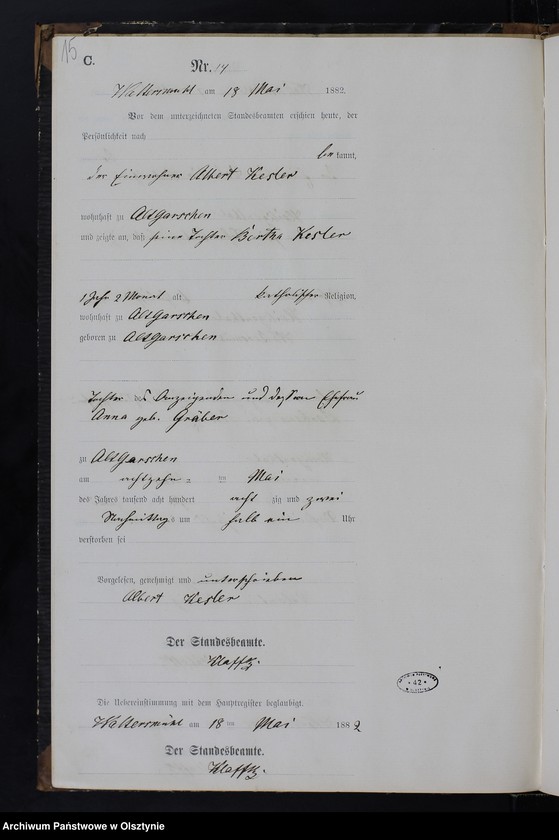 15
C.
Nr. 14
Waltersmühl am 18 Mai 1882.
Vor dem unterzeichneten Standesbeamten erschien heute, der
Persönlichkeit nach
be kannt,
der Einwohner Albert Kesler
wohnhaft zu AltGarschen
und zeigte an, daß seine Tochter Bertha Kesler
1 Jahr 2 Monat alt katholischer Religion,
wohnhaft zu AltGarschen
geboren zu AltGarschen
Tochter des Anzeigenden und dessen Ehefrau
Anna geb. Gräber
zu AltGarschen
am achtzehn ten Mai
des Jahres tausend acht hundert acht zig und zwei
Nachmittags um halb ein Uhr
verstorben sei
Vorgelesen, genehmigt und unterschrieben
Albert Kesler
Der Standesbeamte.
Die Uebereinstimmung mit dem Hauptregister beglaubigt.
Waltersmühl am 18 ten Mai 1882
Der Standesbeamte.
42
Archiwum Państwowe w Olsztynie